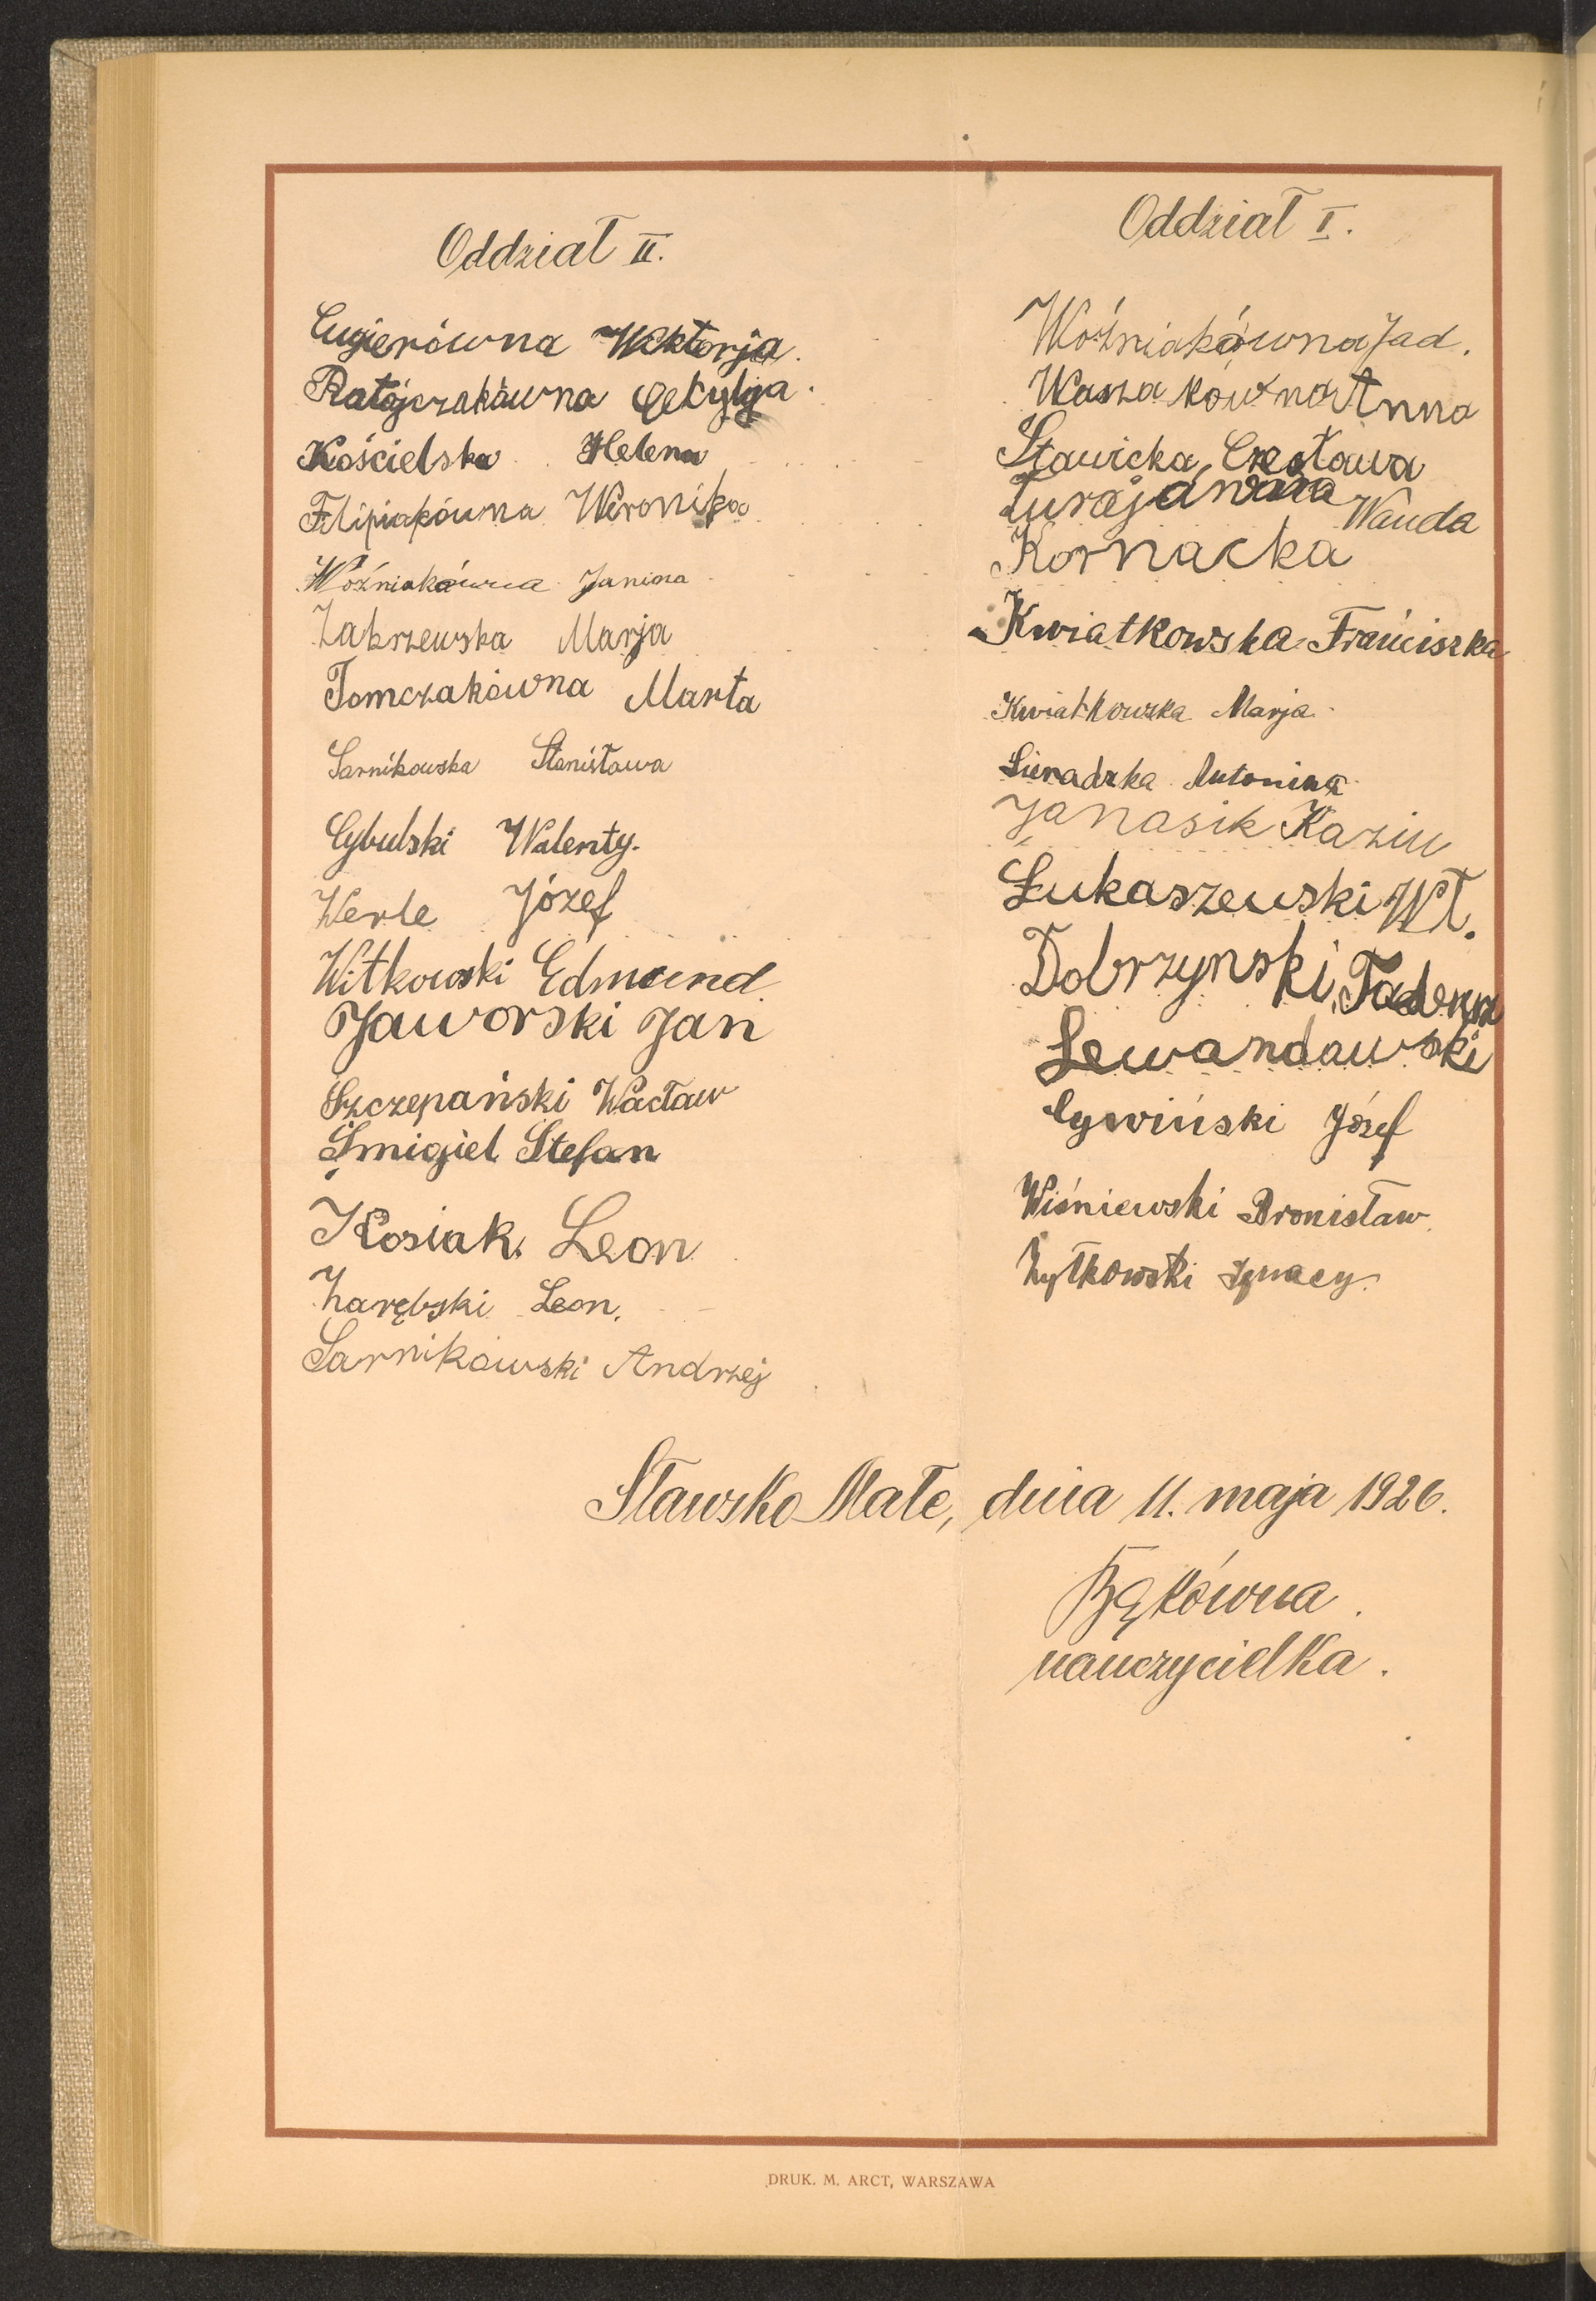 Oddział II.
Cugierówna Wiktorja.
Ratajczakówna Cekylja.
Kościelska Helena
Filipiakówna Weronika
Woźniakówna Janina
Zakrzewska Marja
Tomczakówna Marta
Sarnikowska Stanisława
Cybulski Walenty.
Werle Józef
Witkowski Edmund.
Jaworski Jan
Szczepański Wacław
Śmigiel Stefan
Kosiak. Leon
Zarębski Leon.
Sarnikowski Andrzej
Oddział I.
Woźniakówna Jad.
Waszakówna Anna
Stawicka Czesława
Wanda
Kornacka
Kwiatkowska Franciszka
Kwiatkowska Marja.
Sieradzka Antonina
Janasik Kazim
Łukaszewski Wł.
Dobrzynski Tadeusz
Lewandawski
Cywiński Józef
Wiśniewski Bronisław.
Żytkowski Ignacy.
Sławsko Małe, dnia 11. maja 1926.
Bąkówna.
nauczycielka.
DRUK. M. ARCT, WARSZAWA